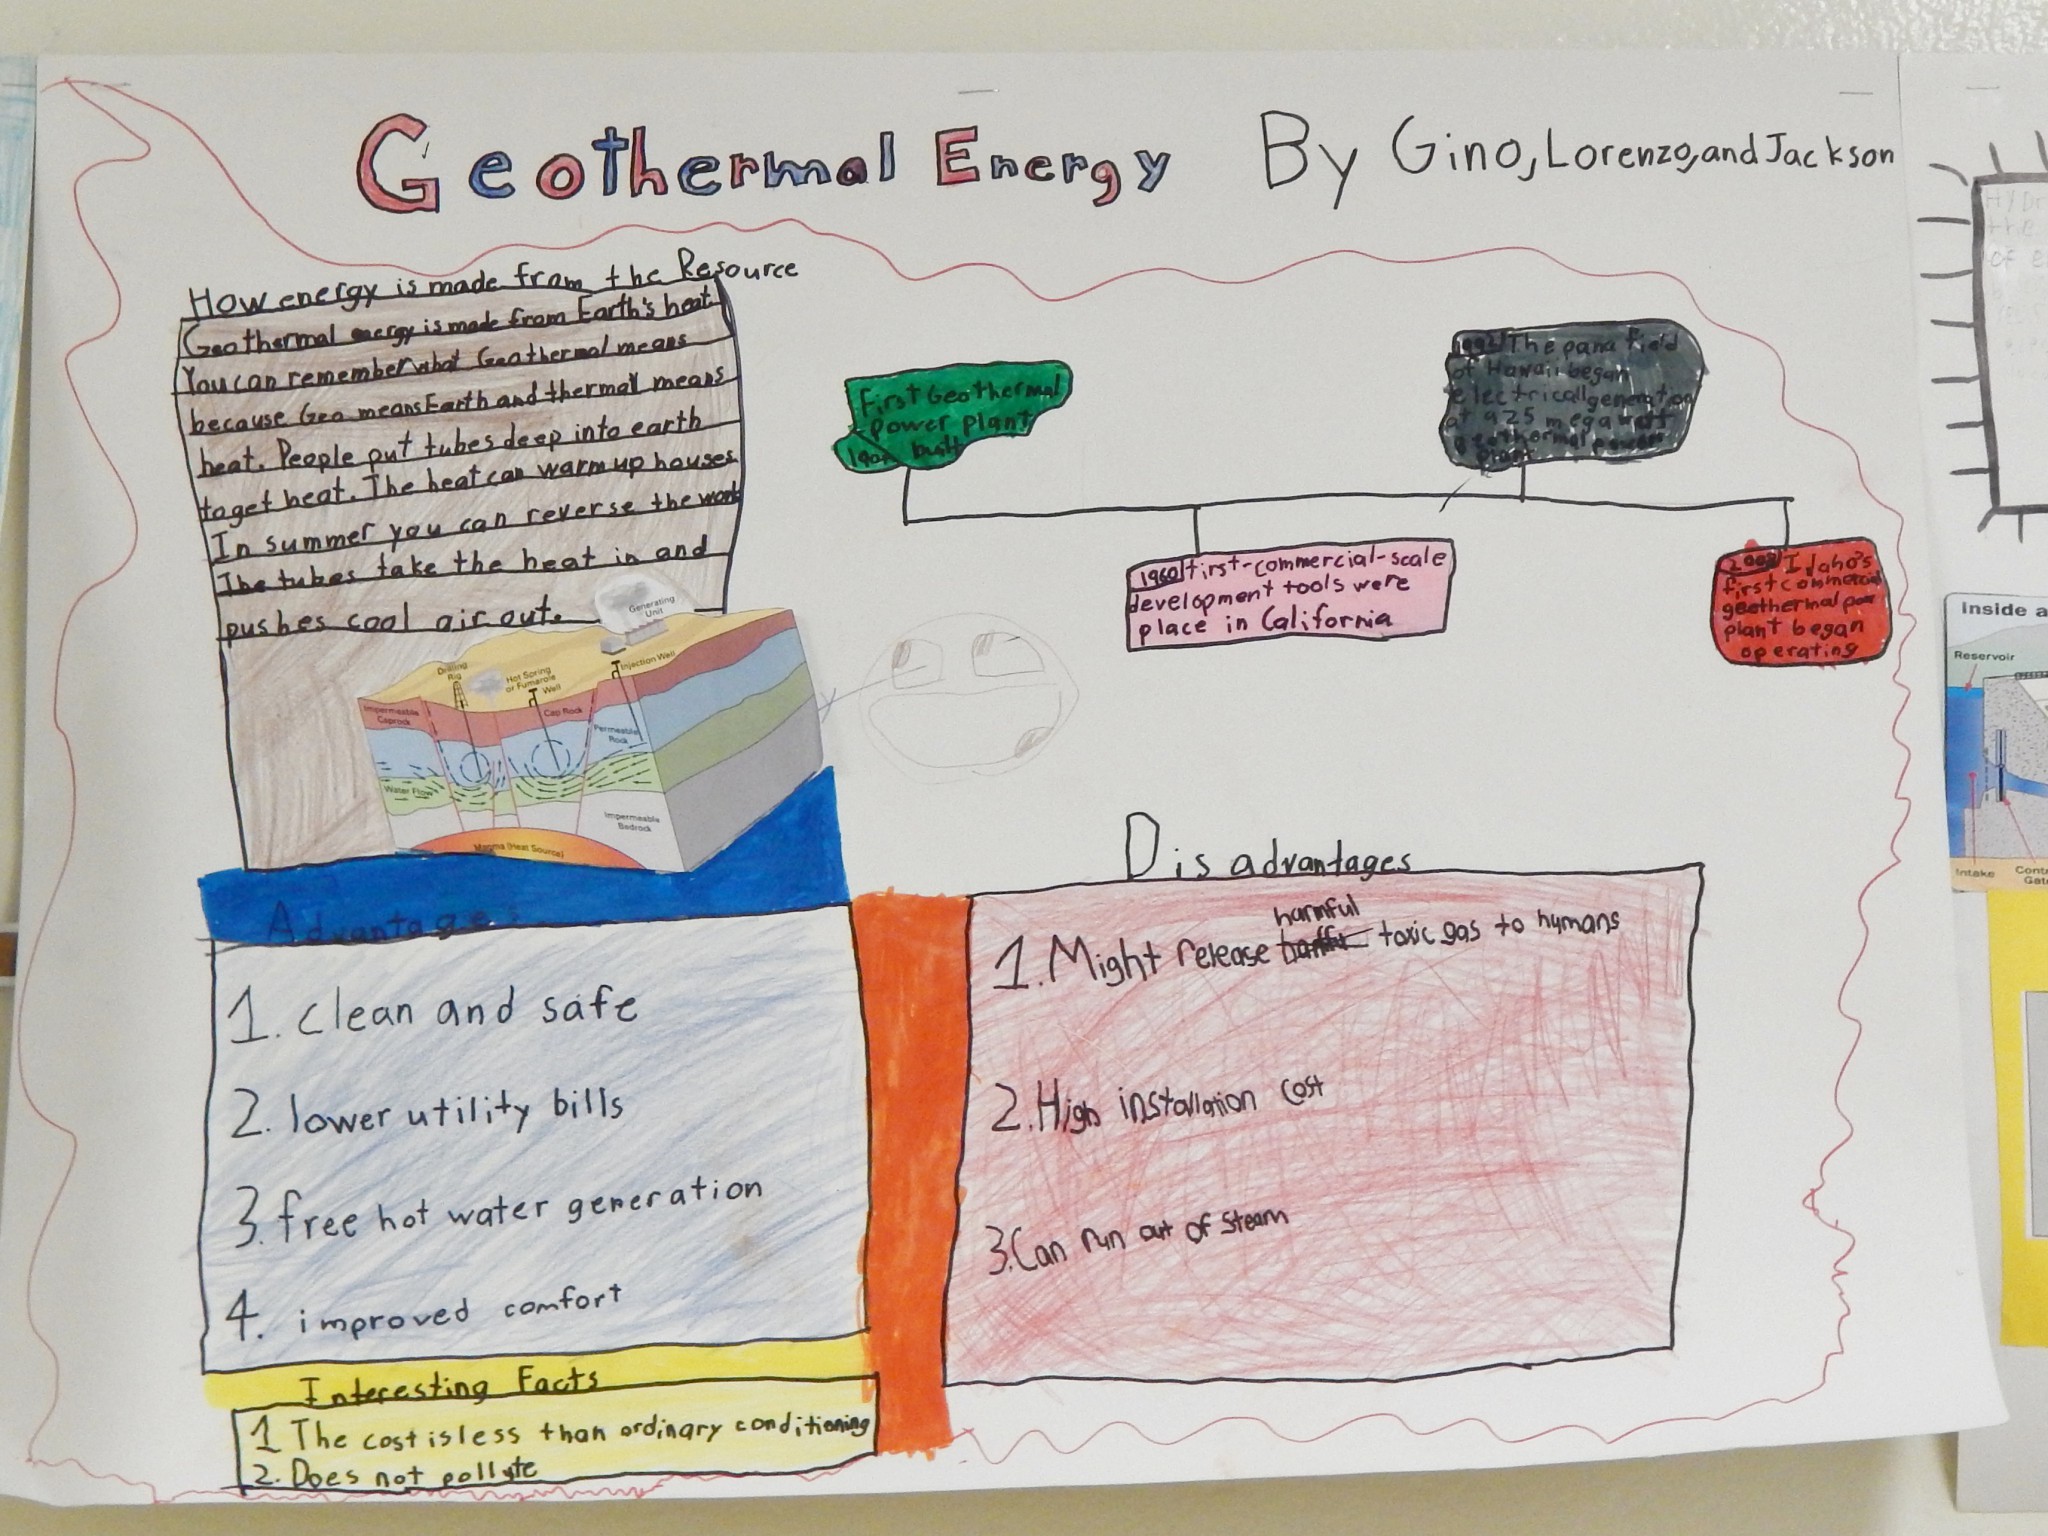 Geothermal Energy By Gino, Lorenzo, and Jackson
How energy is made from the Resource
Geothermal energy is made from Earth's heat.
You can remember what Geothermal means
because Geo means Earth and thermal means
heat. People put tubes deep into earth
to get heat. The heat can warm up houses.
In summer you can reverse the work
The tubes take the heat in and
pushes cool air out.
Generating
Unit
Drilling
Rig
Hot Spring
or Fumarole
Well
Injection Well
Impermeable
Caprock
Cap Rock
Permeable
Rock
Water Flow
Impermeable
Bedrock
Magma (Heat Source)
First Geothermal
power plant
built
1960 first-commercial-scale
development tools were
place in California
The pana field
of Hawaii began
electrical generation
at a 25 megawatt
geothermal power
plant
Idaho's
first commercial
geothermal
plant began
operating
Advantages
1. clean and safe
2. lower utility bills
3. free hot water generation
4. improved comfort
Disadvantages
1. Might release harmful toxic gas to humans
2. High installation cost
3. Can run out of steam
Interesting Facts
1 The cost is less than ordinary conditioning
2. Does not pollute
Inside a
Reservoir
Intake